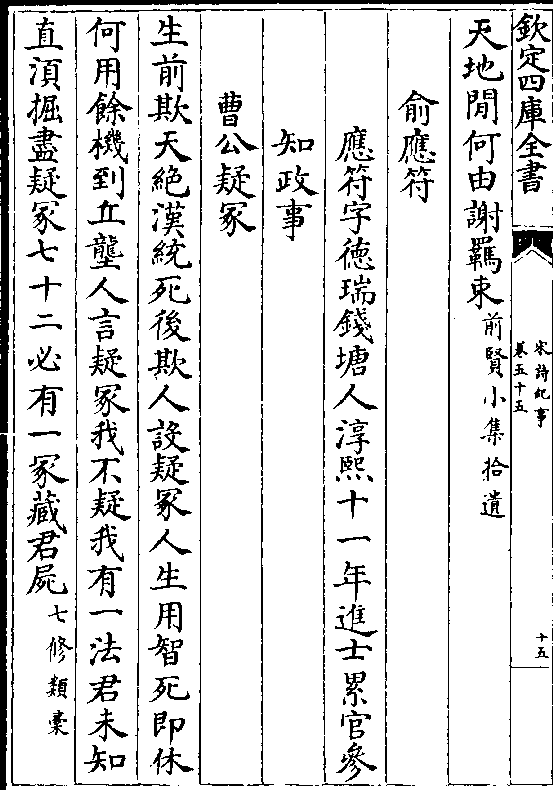 欽定四庫全書
宋詩紀事
卷五十五
十五
天地間何由謝羈束前賢小集拾遺
俞應符
應符字德瑞錢塘人淳熙十一年進士累官參
知政事
曹公疑冢
生前欺天絕漢統死後欺人設疑冢人生用智死即休
何用餘機到丘壟人言疑冢我不疑我有一法君未知
直須掘盡疑冢七十二必有一冢藏君屍七修類稾